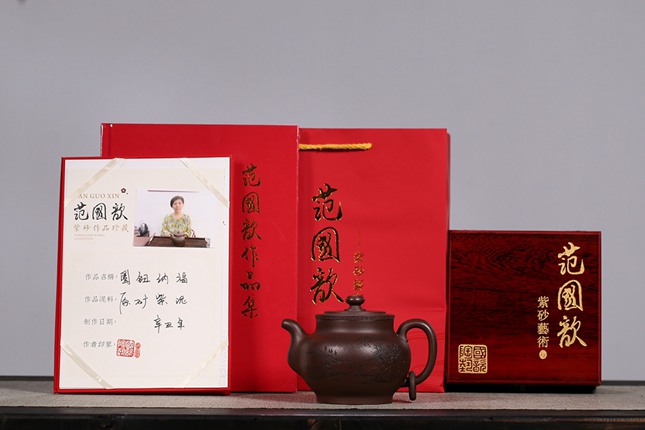 AN GUO XIN
范國歆
紫砂作品珍藏
作品名稱:圓鈕納福
作品泥料:原礦紫泥
制作日期:辛丑年
作者印鑒:
范國歆作品集
范國歆
紫砂藝
范國歆
紫砂藝術
國歆
陶藝